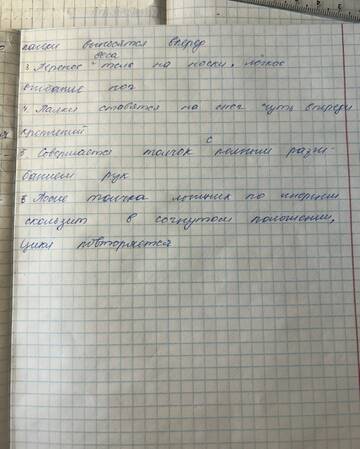 палки выносятся вперед
3. Перенос веса тела на носки, лёгкое
сгибание ног
4. Палки ставятся на снег чуть впереди
креплений
5 Совершается толчок с полным разги-
банием рук
6 После толчка лыжник по инерции
скользит в согнутом положении,
цикл повторяется